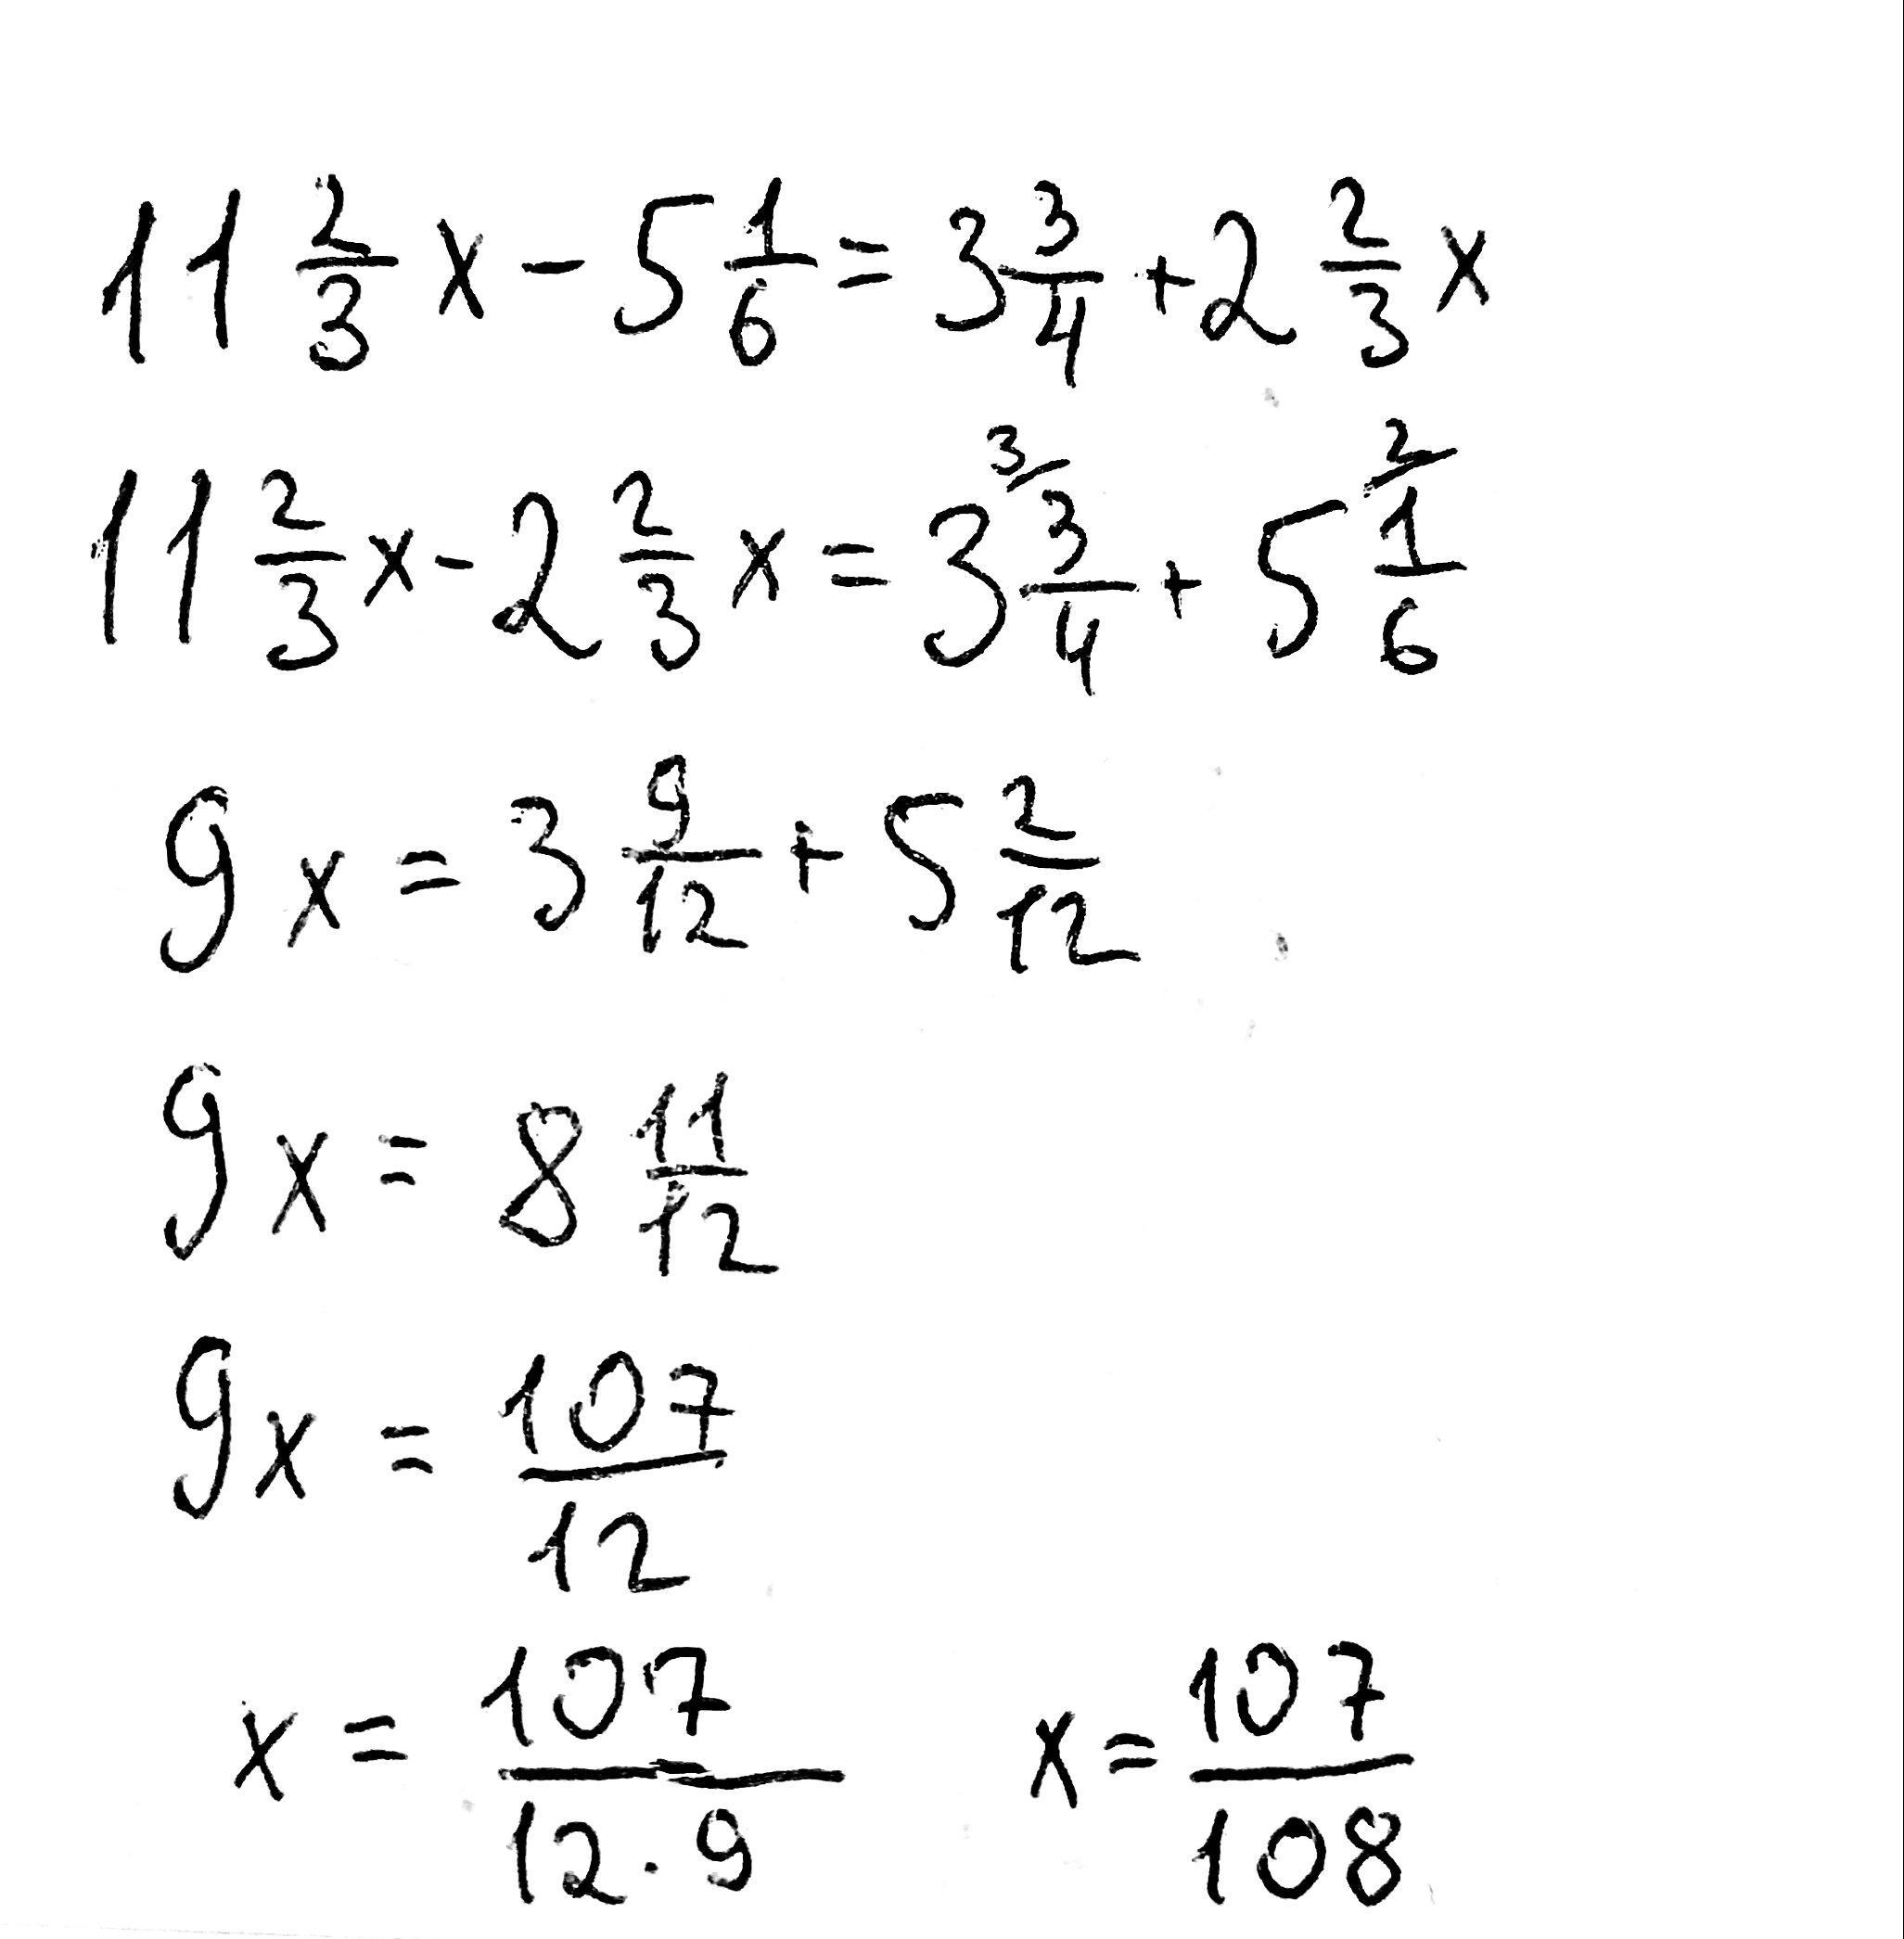 11 2/3 x - 5 1/6 = 3 3/4 + 2 2/3 x
11 2/3 x - 2 2/3 x = 3 ³⁄ 3/4 + 5 ²⁄ 1/6
9x = 3 9/12 + 5 2/12
9x = 8 11/12
9x = 107/12
x = 107/(12·9) x = 107/108